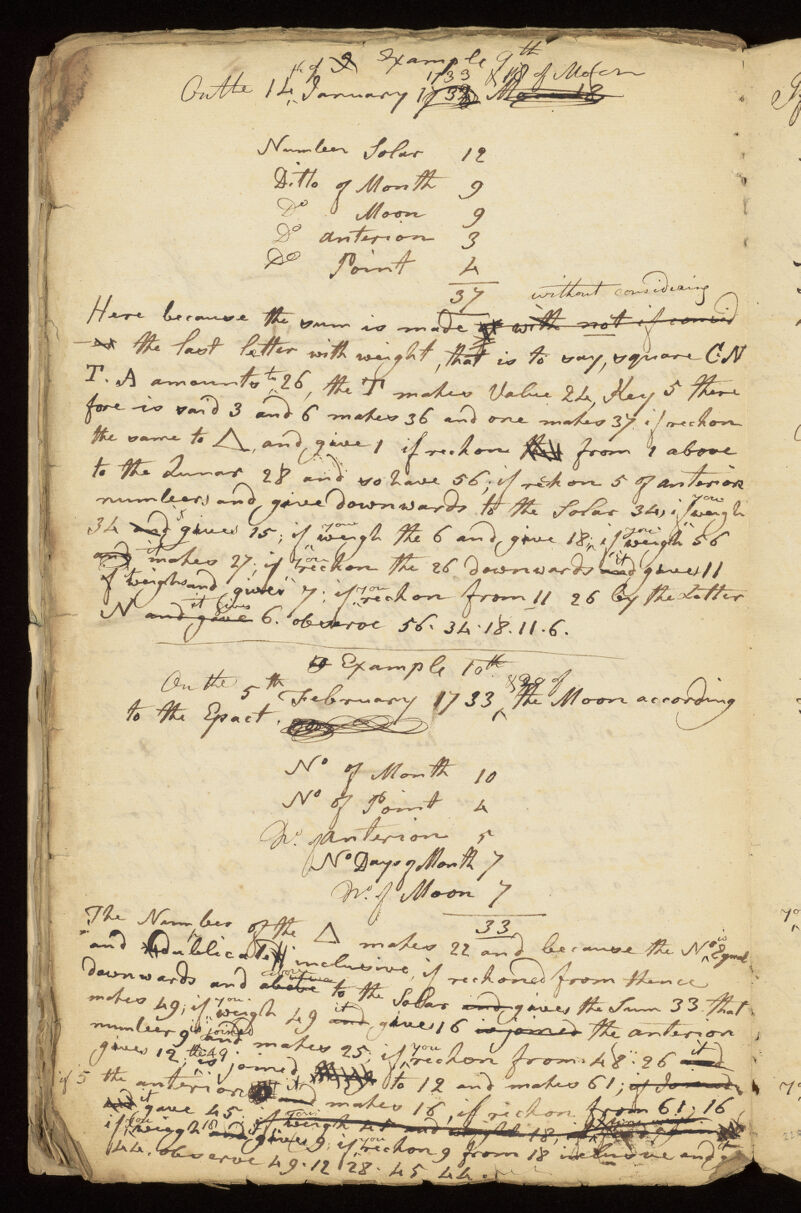 Example 9th
On the 14th of January 1733 & 18 of Moon
Number Solar 12
Ditto of Month 9
Do Moon 9
Do anterior 3
Do Point 4
37
Here because the sum is made without considering
the last letter with weight, that is to say, square C.N
T. A amounts to 26, the T makes Value 24, Key 5 there
fore is said 3 and 6 makes 36 and one makes 37 if reckon
the same to △, and give 1 if reckon from 1 above
to the Lunar 28 and so have 56; if rekon 5 of anterior
numbers and give downwards to the Solar 34; if you weigh
34 gives 15; if you weigh the 6 and give 18; if you weigh 56
it makes 27; if you reckon the 26 downwards it gives 11
if weighs and gives 7; if you reckon from 11 26 by the Letter
N it gives 6. observe 56. 34. 18. 11. 6.
Example 10th
On the 5th February 1733, & 20 of the Moon according
to the Epact.
No of Month 10
No of Point 4
No. of anterior 5
No Days of Month 7
No. of Moon 7
33
The Number of the △ makes 22 and because the No is Equal
and dublicate inclusive, if reckoned from thence
downwards and above to the Solar gives the Sum 33 that
makes 49; if you weigh 49 it gives 16 the anterior
number 9 if joined makes 25; if you reckon from 48. 26 it
gives 12; this 49 is joined to 12 and makes 61;
if 5 the anterior it makes 16, if rickon from 61; 16
it gave 45;
if you weigh 18 gives 9; if you reckon 9 from 18 inclusive and
44. observe 49. 12. 28. 45. 44.